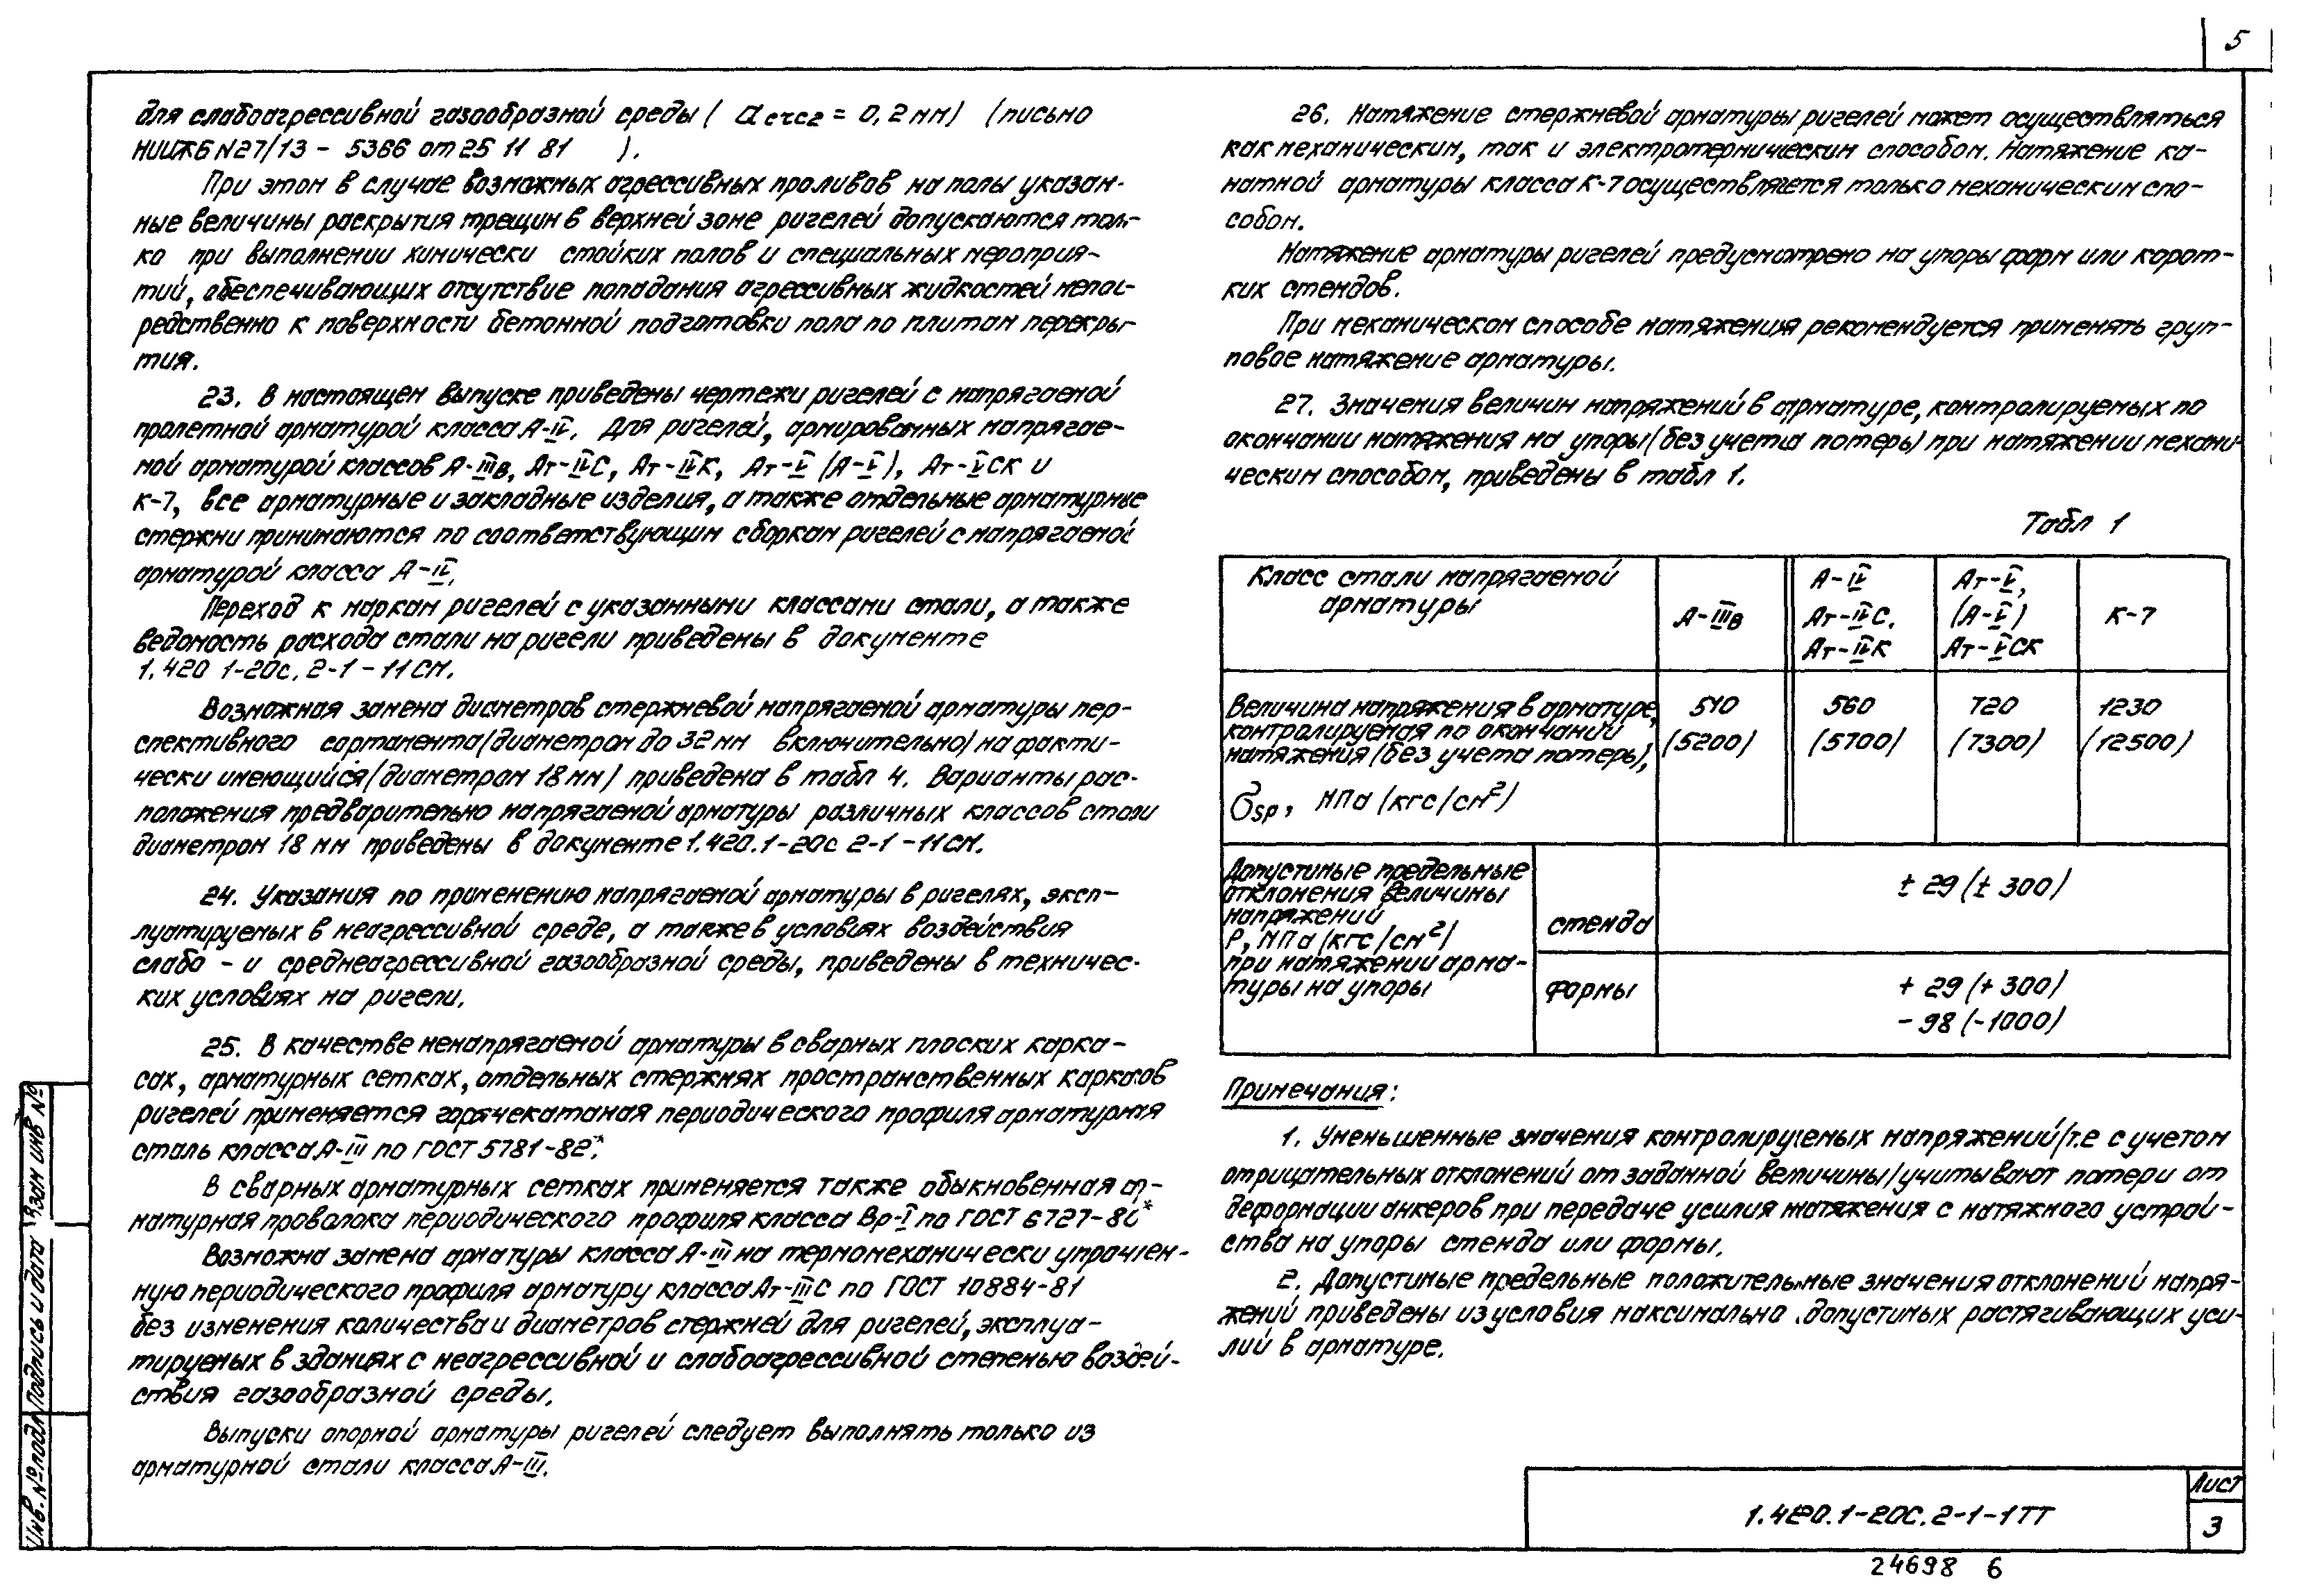 5
для слабоагрессивной газообразной среды ( aстс2 = 0,2 мм) (письмо
НИИЖБ N27/13 - 5366 от 25 11 81 ).
При этом в случае возможных агрессивных проливов на полы указан-
ные величины раскрытия трещин в верхней зоне ригелей допускаются толь-
ко при выполнении химически стойких полов и специальных мероприя-
тий, обеспечивающих отсутствие попадания агрессивных жидкостей непос-
редственно к поверхности бетонной подготовки пола по плитам перекры-
тия.
23. В настоящем выпуске приведены чертежи ригелей с напрягаемой
пролетной арматурой класса А-IV. Для ригелей, армированных напрягае-
мой арматурой классов А-IIIв, Ат-IVС, Ат-IVК, Ат-V (А-V), Ат-VСК и
К-7, все арматурные и закладные изделия, а также отдельные арматурные
стержни принимаются по соответствующим сборкам ригелей с напрягаемой
арматурой класса А-IV.
Переход к маркам ригелей с указанными классами стали, а также
ведомость расхода стали на ригели приведены в документе
1.420 1-20с. 2-1 - 11СМ.
Возможная замена диаметров стержневой напрягаемой арматуры пер-
спективного сортамента (диаметром до 32 мм включительно) на факти-
чески имеющийся (диаметром 18 мм) приведена в табл 4. Варианты рас-
положения предварительно напрягаемой арматуры различных классов стали
диаметром 18 мм приведены в документе 1.420.1-20с 2-1 -11СМ.
24. Указания по применению напрягаемой арматуры в ригелях, эксп-
луатируемых в неагрессивной среде, а также в условиях воздействия
слабо - и среднеагрессивной газообразной среды, приведены в техничес-
ких условиях на ригели.
25. В качестве ненапрягаемой арматуры в сварных плоских карка-
сах, арматурных сетках, отдельных стержнях пространственных каркасов
ригелей применяется горячекатаная периодического профиля арматурная
сталь класса А-III по ГОСТ 5781-82*.
В сварных арматурных сетках применяется также обыкновенная ар-
матурная проволока периодического профиля класса Вр-I по ГОСТ 6727-80*
Возможна замена арматуры класса А-III на термомеханически упрочнен-
ную периодического профиля арматуру класса Ат-IIIС по ГОСТ 10884-81
без изменения количества и диаметров стержней для ригелей, эксплуа-
тируемых в зданиях с неагрессивной и слабоагрессивной степенью воздей-
ствия газообразной среды.
Выпуски опорной арматуры ригелей следует выполнять только из
арматурной стали класса А-III.
26. Натяжение стержневой арматуры ригелей может осуществляться
как механическим, так и электротермическим способом. Натяжение ка-
натной арматуры класса К-7 осуществляется только механическим спо-
собом.
Натяжение арматуры ригелей предусмотрено на упоры форм или корот-
ких стендов.
При механическом способе натяжения рекомендуется применять груп-
повое натяжение арматуры.
27. Значения величин напряжений в арматуре, контролируемых по
окончании натяжения на упоры (без учета потерь) при натяжении механи-
ческим способом, приведены в табл 1.
Табл 1
Класс стали напрягаемой
арматуры
А-IIIв
А-IV
Ат-IVС.
Ат-IVК
Ат-V,
(А-V)
Ат-VСК
К-7
Величина напряжения в арматуре,
контролируемая по окончании
натяжения (без учета потерь),
σsp, МПа (кгс/см²)
510
(5200)
560
(5700)
720
(7300)
1230
(12500)
Допустимые предельные
отклонения величины
напряжений
Р, МПа (кгс/см²)
при натяжении арма-
туры на упоры
стенда
± 29 (± 300)
формы
+ 29 (+ 300)
- 98 (-1000)
Примечания:
1. Уменьшенные значения контролируемых напряжений (т.е с учетом
отрицательных отклонений от заданной величины) учитывают потери от
деформации анкеров при передаче усилия натяжения с натяжного устрой-
ства на упоры стенда или формы.
2. Допустимые предельные положительные значения отклонений напря-
жений приведены из условия максимально допустимых растягивающих уси-
лий в арматуре.
Инв. № подл
Подпись и дата
Взам инв №
1.420.1-20с.2-1-1ТТ
Лист
3
24698 6